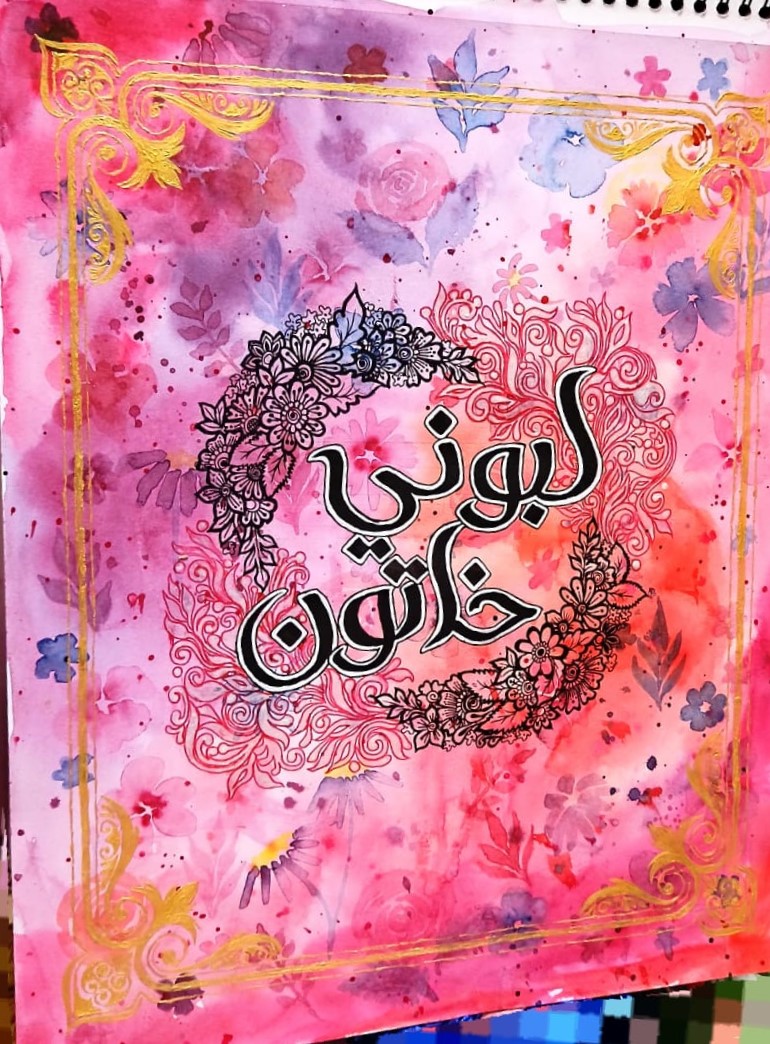 لبوني
خاتون